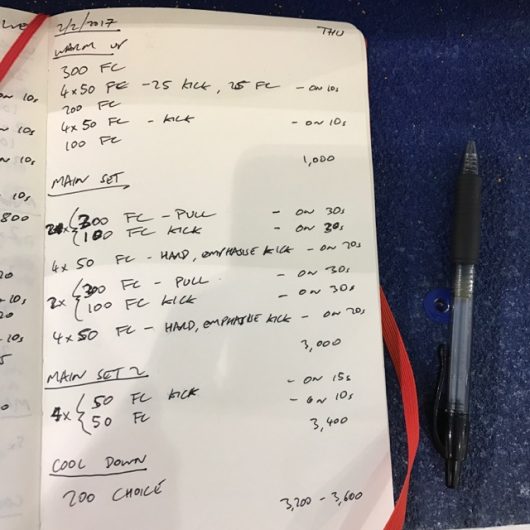 2/2/2017 THU
WARM UP
300 FC
4x50 FC - 25 KICK, 25 FC - ON 10s
200 FC
4x50 FC - KICK - ON 10s
100 FC
1,000
MAIN SET
2x { 300 FC - PULL - ON 30s
100 FC KICK - ON 30s
4x50 FC - HARD, EMPHASISE KICK - ON 20s
2x { 300 FC - PULL - ON 30s
100 FC KICK - ON 30s
4x50 FC - HARD, EMPHASISE KICK - ON 20s
3,000
MAIN SET 2
4x { 50 FC KICK - ON 15s
50 FC - ON 10s
3,400
COOL DOWN
200 CHOICE 3,200 - 3,600